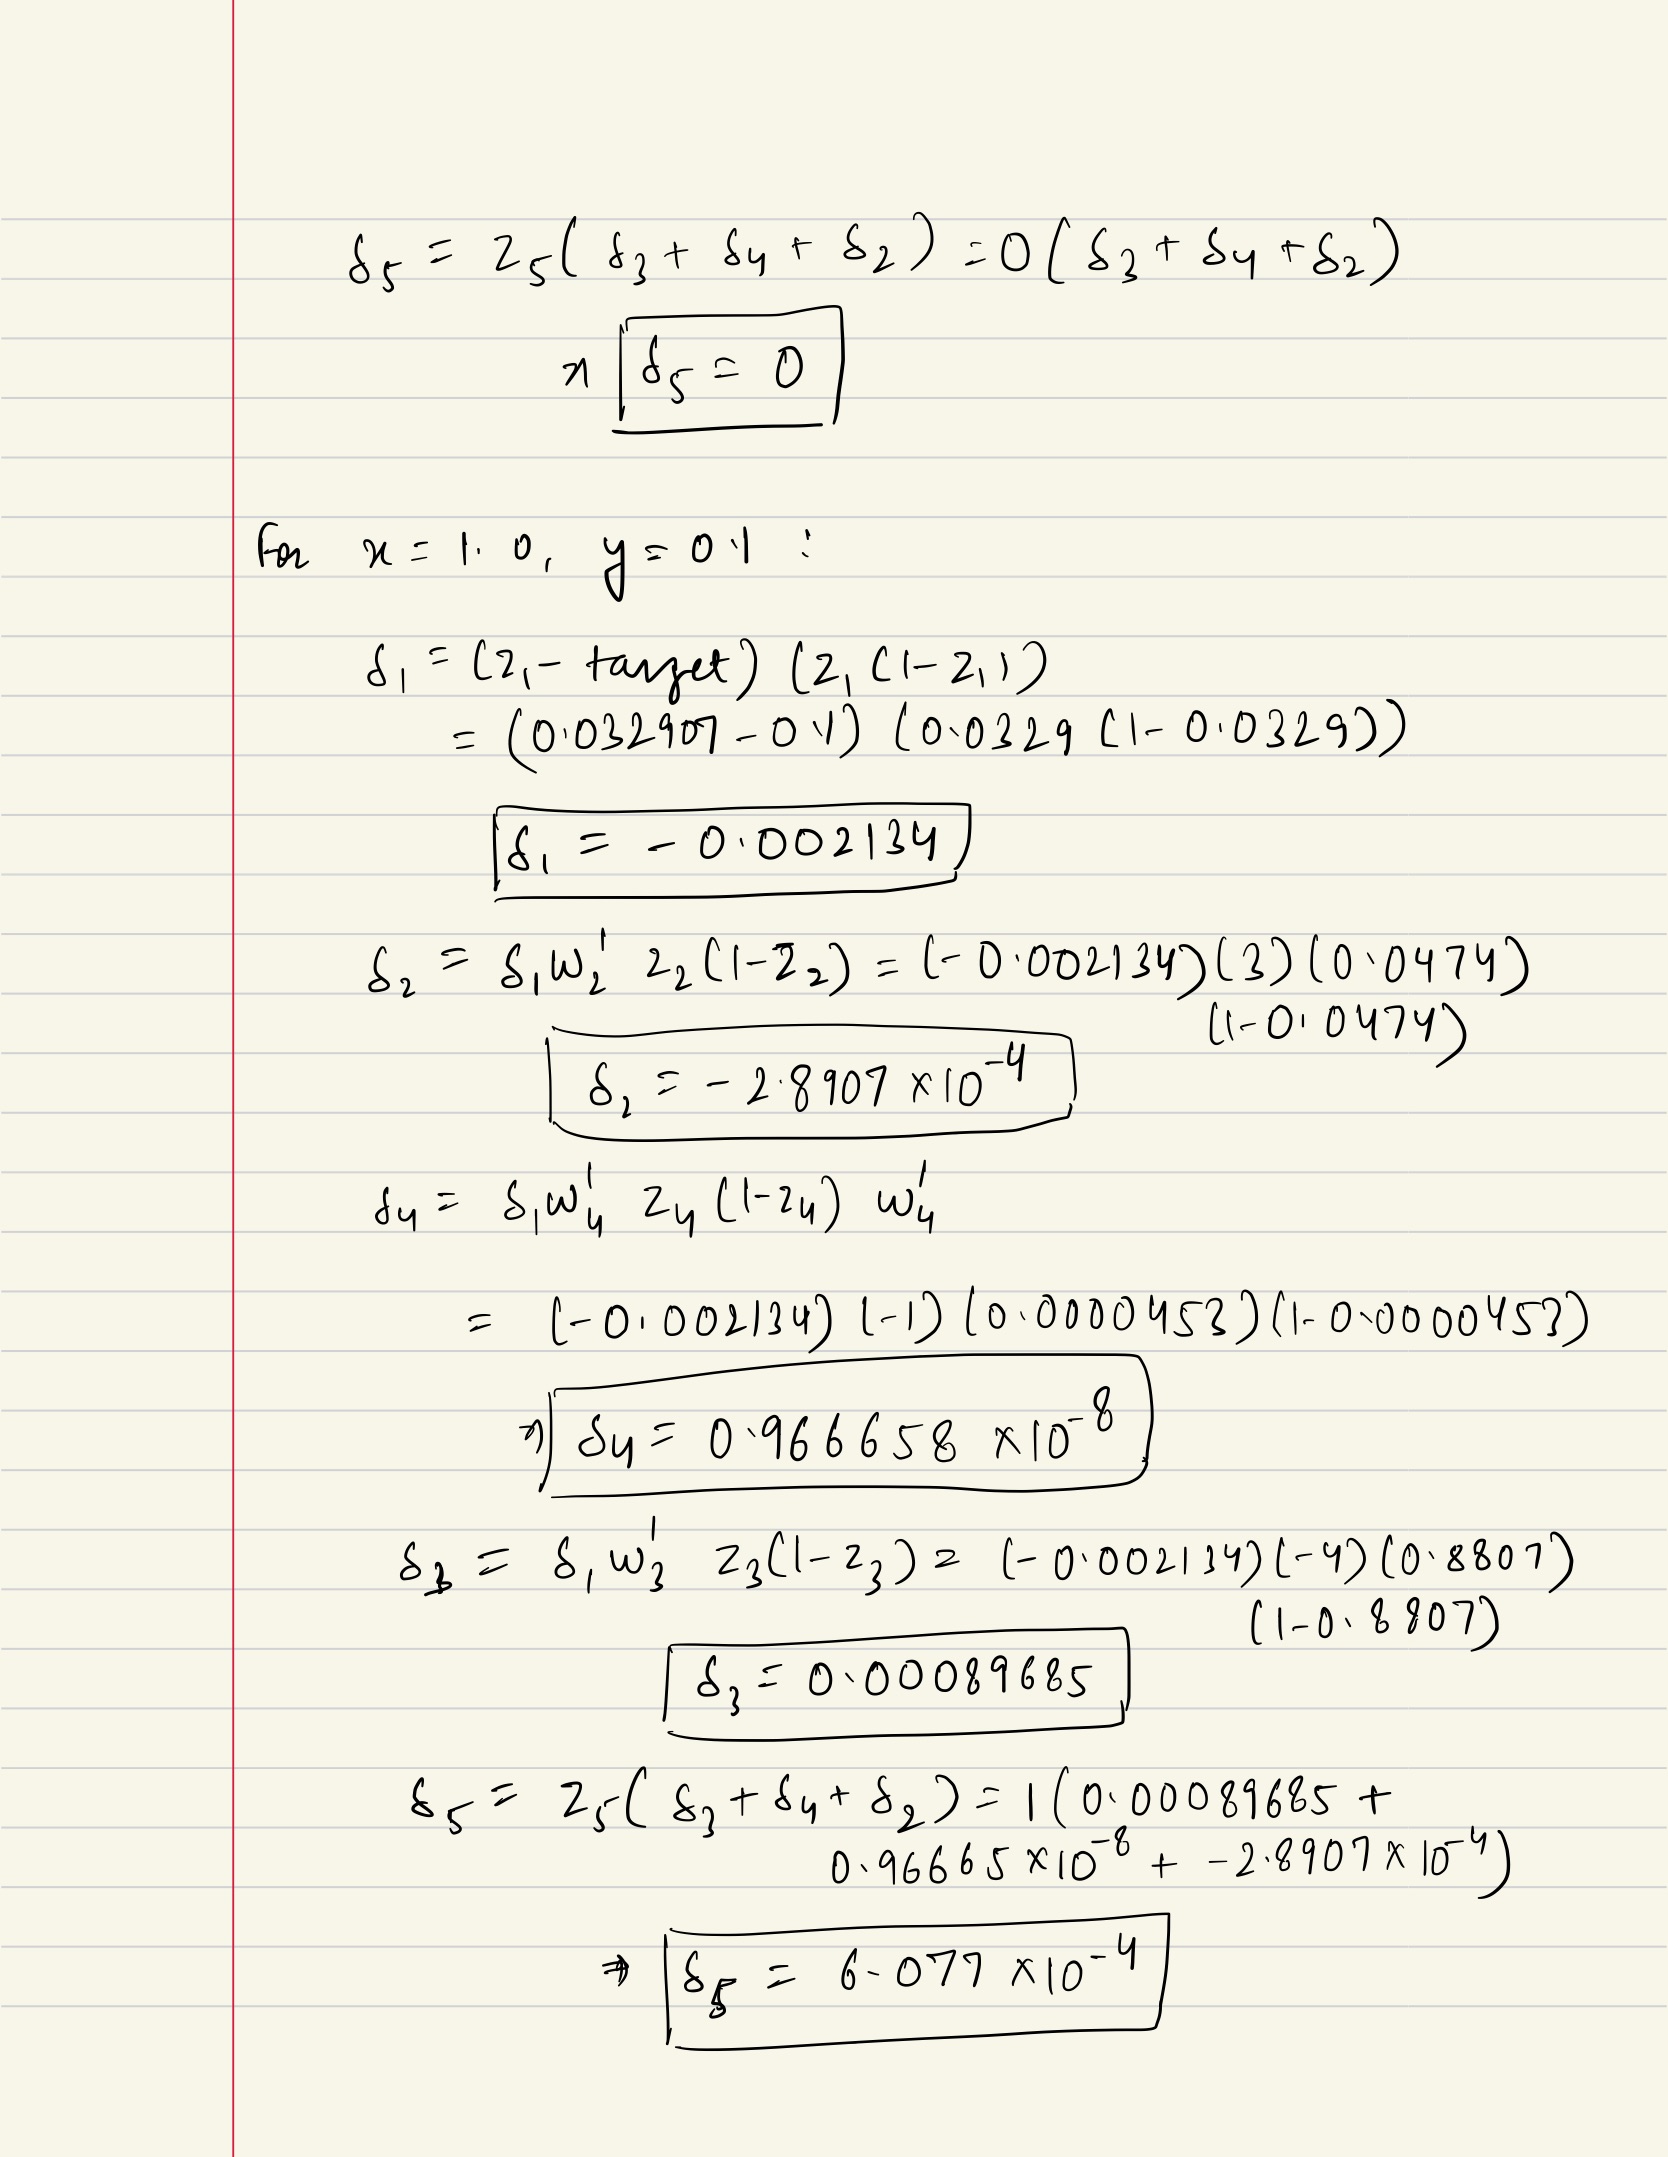 δ₅ = z₅( δ₃ + δ₄ + δ₂ ) = 0( δ₃ + δ₄ + δ₂ )
δ₅ = 0
For x = 1.0, y = 0.1 :
δ₁ = (z₁ - target) (z₁ (1 - z₁))
= (0.032907 - 0.1) (0.0329 (1 - 0.0329))
δ₁ = - 0.002134
δ₂ = δ₁w₂' z₂(1-z₂) = (-0.002134)(3)(0.0474)
(1-0.0474)
δ₂ = - 2.8907 ×10⁻⁴
δ₄ = δ₁w₄' z₄ (1-z₄) w₄'
= (-0.002134) (-1) (0.0000453)(1-0.0000453)
δ₄ = 0.966658 ×10⁻⁸
δ₃ = δ₁w₃' z₃(1-z₃) = (-0.002134)(-4)(0.8807)
(1-0.8807)
δ₃ = 0.00089685
δ₅ = z₅( δ₃ + δ₄ + δ₂ ) = 1(0.00089685 +
0.96665 ×10⁻⁸ + -2.8907 × 10⁻⁴)
⇒ δ₅ = 6.077 ×10⁻⁴